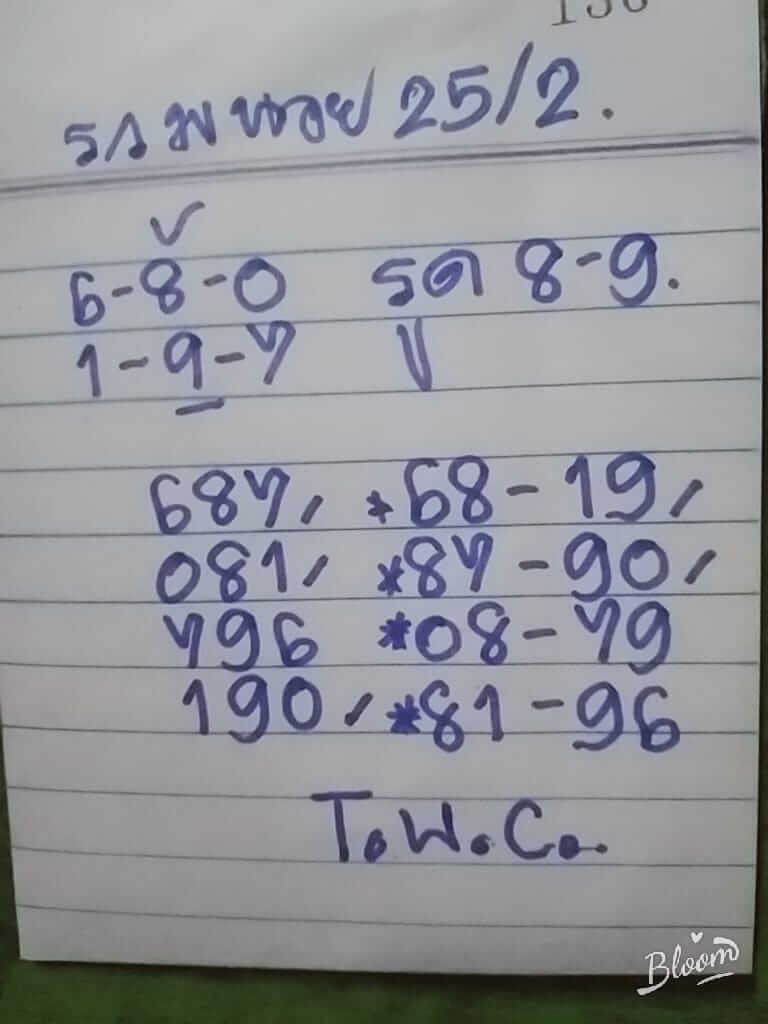 รวมหวย 25/2.
6-8-0 รูด 8-9.
1-9-7
687, *68-19,
081, *87-90,
796 *08-79
190, *81-96
T.W.C..
Bloom